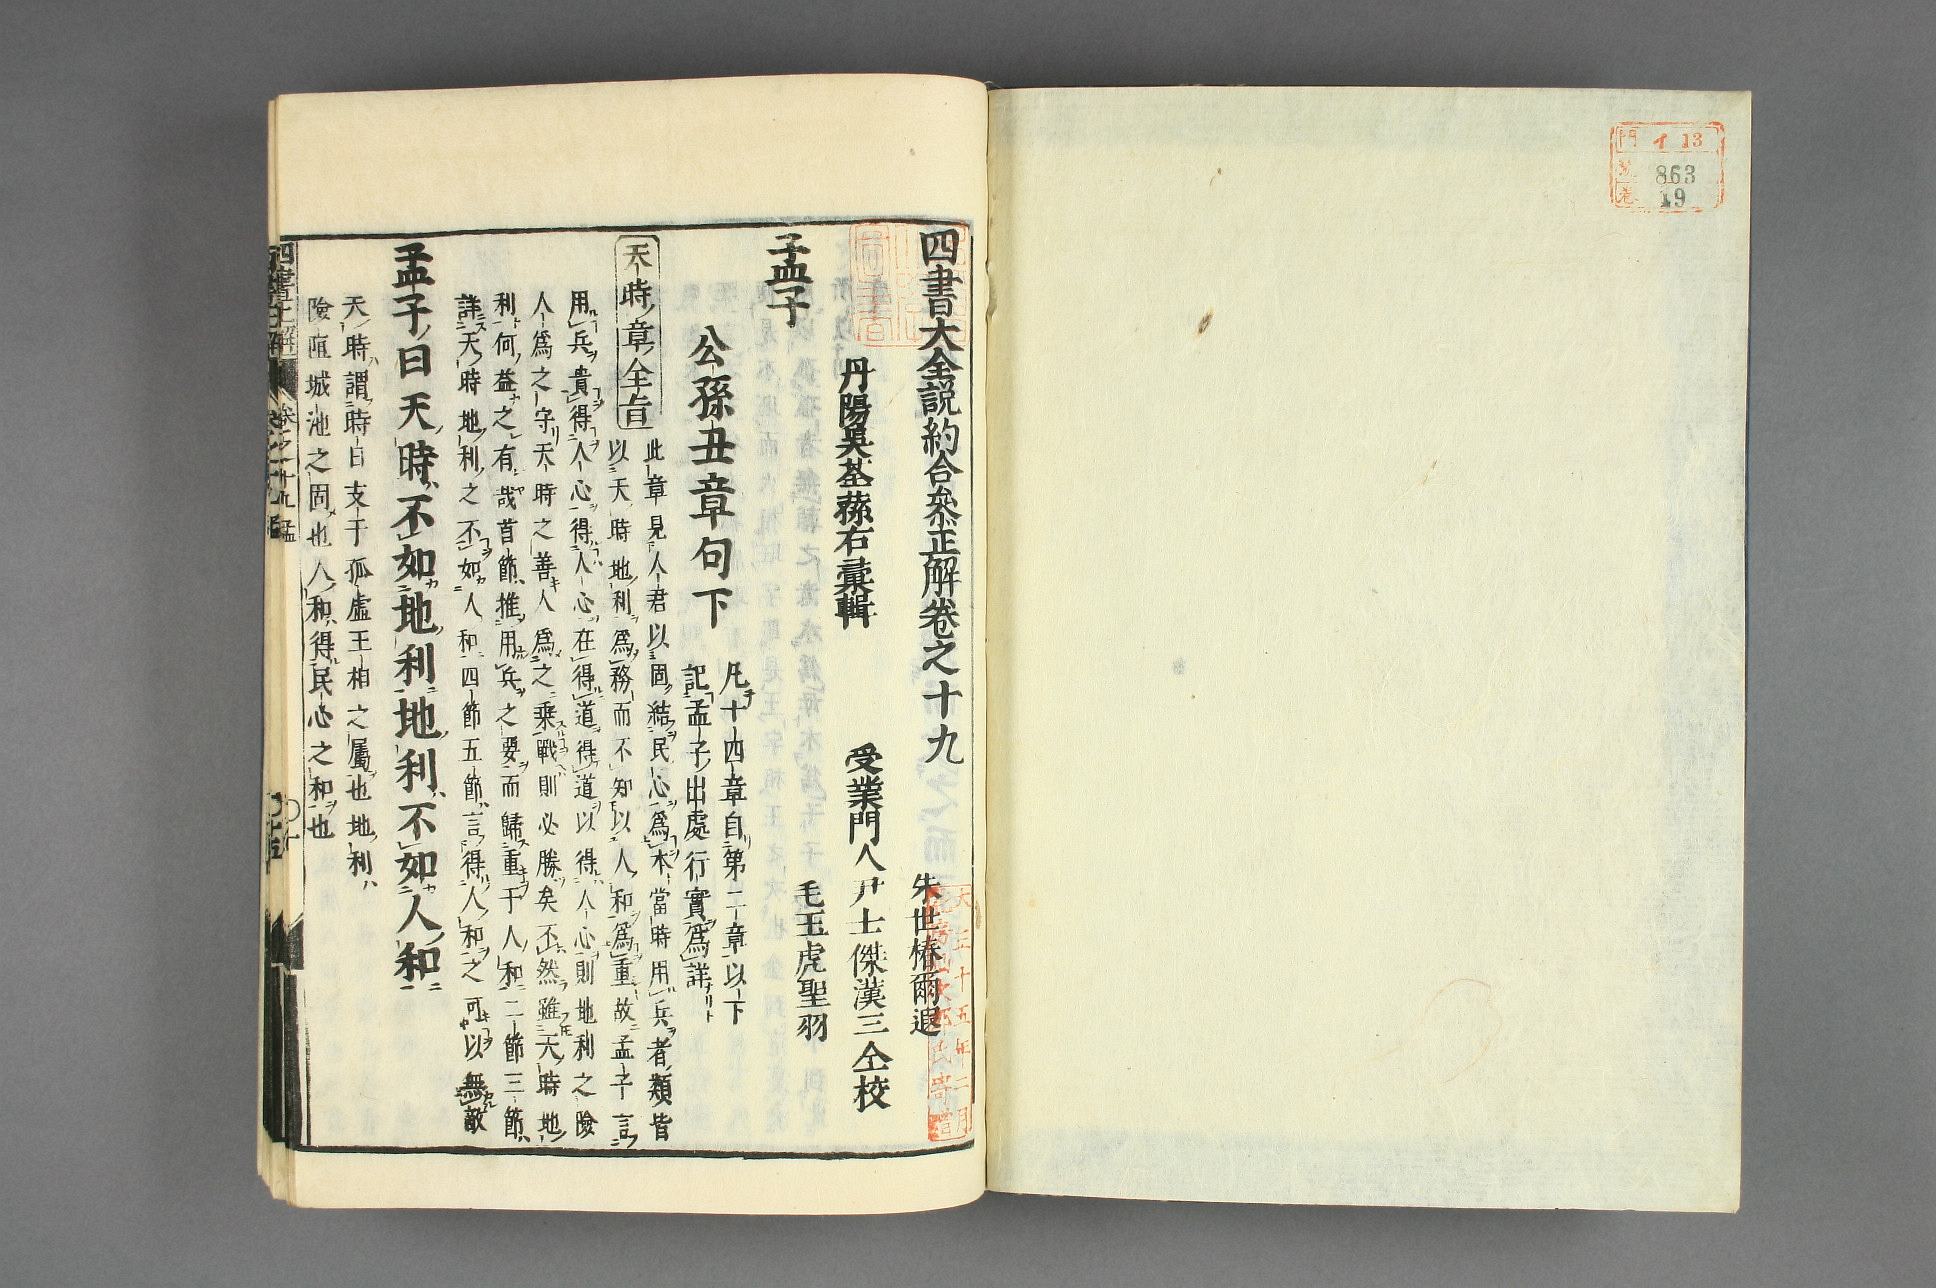 門 イ 13
號 863
卷 19
四書大全説約合叅正解卷之十九
丹陽吳荃蓀右彙輯
受業門人
朱世椿爾遐
尹士傑漢三仝校
毛玉虎聖羽
孟子
公孫丑章句下
凡十四章自第二章以下
記孟子出處行實爲詳
天時章全旨
此章見人君以固結民心爲本當時用兵者類皆
以天時地利爲務而不知以人和爲重故孟子言
用兵貴得人心得人心在得道得道以得人心則地利之險
人爲之守天時之善人爲之乘戰則必勝矣不然雖天時地
利何益之有哉首節推用兵之要而歸重于人和二節三節
詳天時地利之不如人和四節五節言得人和之可以無敵
孟子曰天時不如地利地利不如人和
天時謂時日支干孤虛王相之屬也地利
險阻城池之固也人和得民心之和也